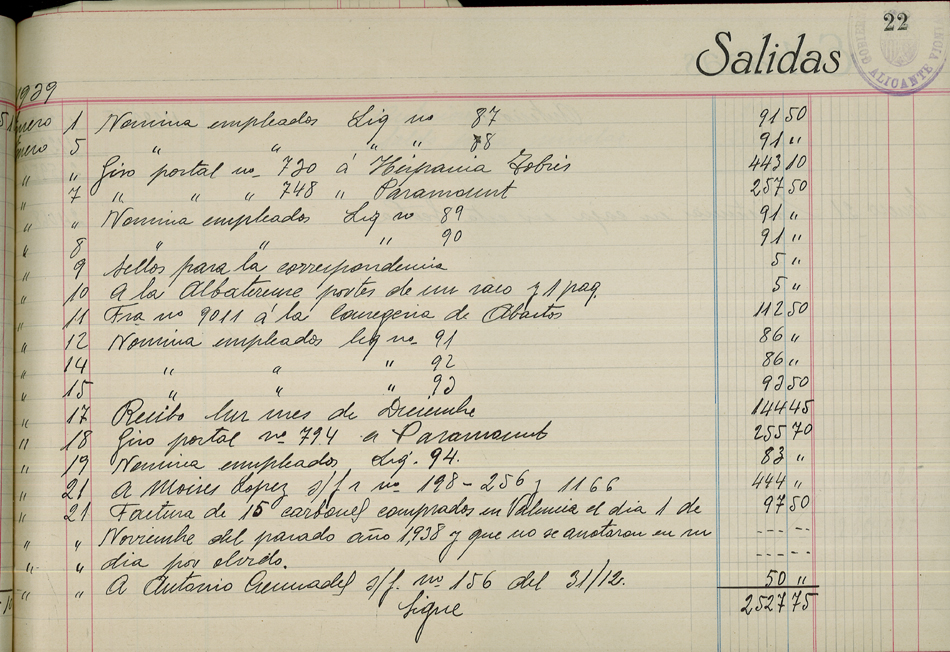 22
Salidas
GOBIER ALICANTE
1939
Enero 1 Nomina empleados Liq no 87 91 50
Enero 5 " " " " 88 91 "
" " Giro portal no. 730 á Hispania Tobis 443 10
" 7 " " " 748 " Paramount 257 50
" " Nomina empleados Liq no 89 91 "
" 8 " " " 90 91 "
" 9 Sellos para la correspondencia 5 "
" 10 A la Albaterense portes de un saco y 1 paq. 5 "
" 11 Fra no 9011 á la Consegeria de Abastos 112 50
" 12 Nomina empleados liq no. 91 86 "
" 14 " " " 92 86 "
" 15 " " " 93 93 50
" 17 Recibo luz mes de Diciembre 144 45
" 18 Giro portal no 794 a Paramount 255 70
" 19 Nomina empleados Liq. 94. 83 "
" 21 A Moises Lopez s/f no 198 - 256 y 1166 444 "
" 21 Factura de 15 carbones comprados en Valencia el dia 1 de 97 50
" " Novrembe del pasado año 1,938 y que no se anotaron en su - - - -
" " dia por olvido. - - - -
" " A Antonio s/f. no 156 del 31/12. 50 "
Sigue 2527 75